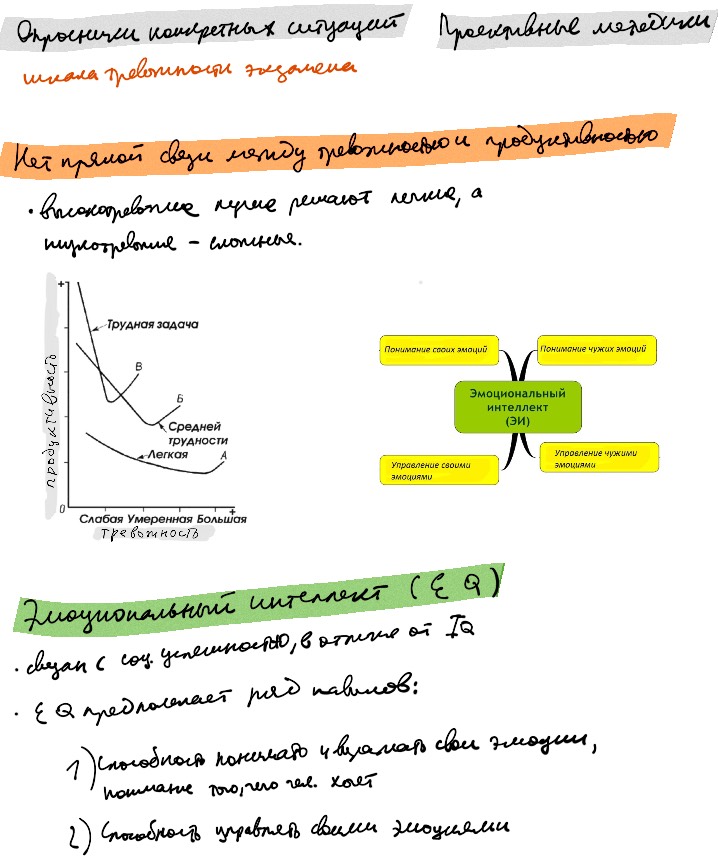 Опросники конкретных ситуаций
Проективные методики
шкала тревожности экзамена
Нет прямой связи между тревожностью и продуктивностью
• высокотревожные лучше решают легкие, а
низкотревожные – сложные.
+
Трудная задача
В
Б
Средней
трудности
Легкая
А
продуктивность
0
Слабая Умеренная Большая
+
тревожность
Понимание своих эмоций
Понимание чужих эмоций
Эмоциональный
интеллект
(ЭИ)
Управление своими
эмоциями
Управление чужими
эмоциями
Эмоциональный интеллект (EQ)
• связан с соц. успешностью, в отличие от IQ
• EQ предполагает ряд навыков:
1) Способность понимать и выражать свои эмоции,
понимание того, чего чел. хочет
2) Способность управлять своими эмоциями